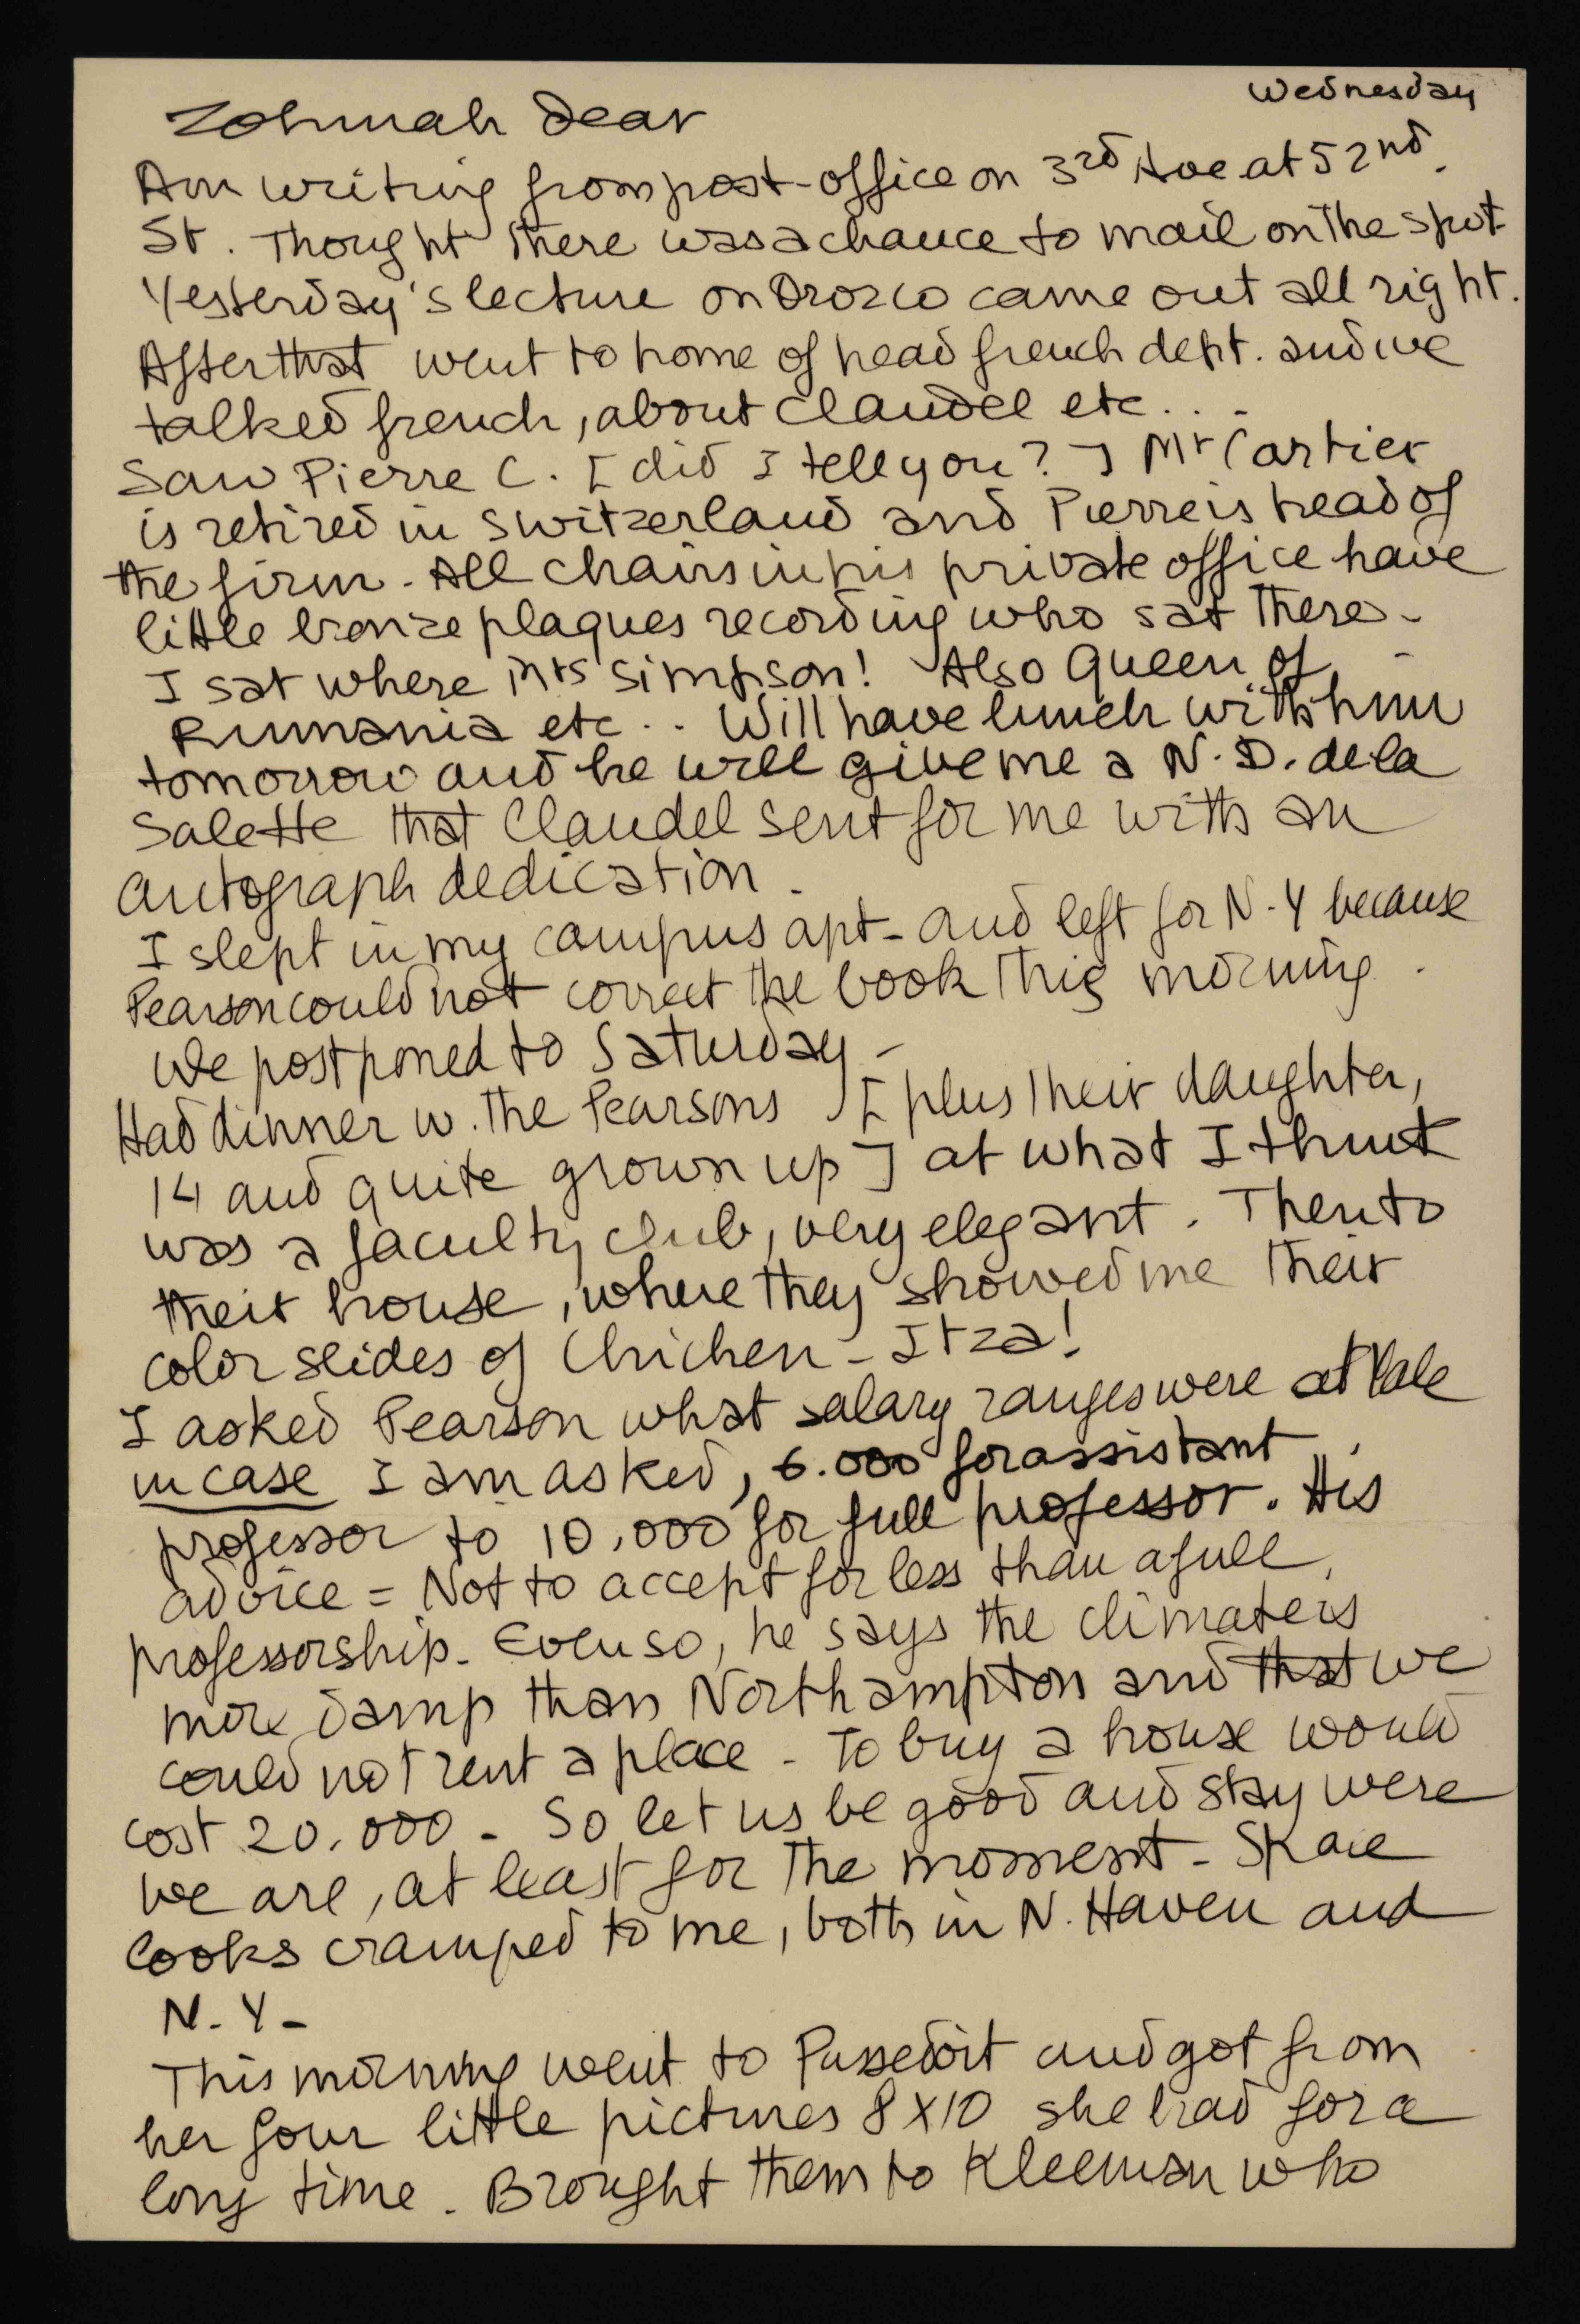 Wednesday
Zohmah Dear
Am writing from post-office on 3rd Ave at 52nd.
St. Thought there was a chance to mail on the spot
Yesterday's lecture on Orozco came out all right.
After that went to home of head french dept. and we
talked french, about Claudel etc...
Saw Pierre C. [did I tell you?] Mr Cartier
is retired in Switzerland and Pierre is head of
the firm. All chairs in his private office have
little bronze plaques recording who sat there.
I sat where Mrs Simpson! Also Queen of
Rumania etc.. Will have lunch with him
tomorrow and he will give me a N.D. de la
Salette that Claudel sent for me with an
autograph dedication.
I slept in my campus apt- and left for N.Y because
Pearson could not correct the book this morning.
We postponed to Saturday-
Had dinner w. the Pearsons [plus their daughter,
14 and quite grown up] at what I think
was a faculty club, very elegant. Then to
their house, where they showed me their
color slides of Chichen-Itza!
I asked Pearson what salary ranges were at Yale
in case I am asked, 6.000 for assistant
professor to 10,000 for full professor. His
advice = Not to accept for less than a full
professorship. Even so, he says the climate is
more damp than Northampton and that we
could not rent a place - To buy a house would
cost 20.000 - So let us be good and stay were
we are, at least for the moment - Space
looks cramped to me, both in N. Haven and
N.Y-
This morning went to Passedoit and got from
her four little pictures 8x10 she had for a
long time. Brought them to Kleeman who